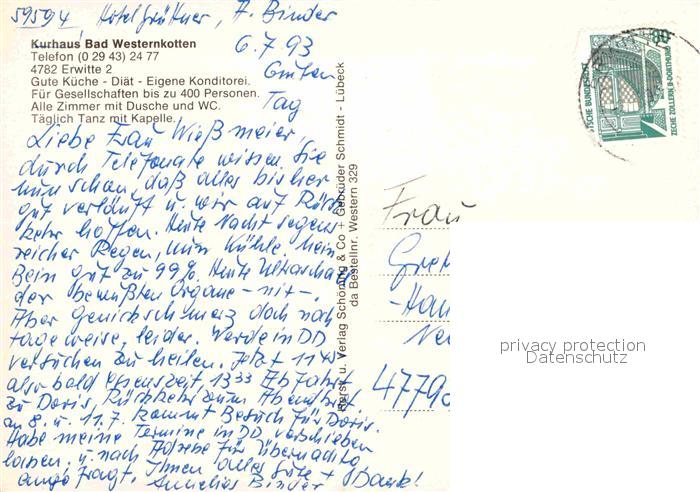 59594 Hotelgrüttner, A. Binder
Kurhaus Bad Westernkotten
Telefon (0 29 43) 24 77
4782 Erwitte 2
Gute Küche - Diät - Eigene Konditorei.
Für Gesellschaften bis zu 400 Personen.
Alle Zimmer mit Dusche und WC.
Täglich Tanz mit Kapelle.
6.7.93
Guten
Tag
Liebe Frau Wießmeier,
durch Telefonate wissen Sie
nun schon, daß alles bisher
gut verläuft u. wir auf Rück
kehr hoffen. Heute Nacht segens
reicher Regen, nun Kühle, mein
Bein gut zu 99%. Heute Ultraschall
der bewußten Organe - nit -.
Aber Genickschmerz doch noch
tageweise, leider. Werde in DD
versuchen zu heilen. Jetzt 11 45
also bald Essenszeit, 13 33 Abfahrt
zu Doris, Rückkehr zum Abendbrot.
am 8. u. 11.7. kommt Besuch für Doris.
Habe meine Termine in DD verschieben
lassen, u. nach Adresse für Übernachtg
angefragt. Ihnen alles Gute + Dank!
Annelies Binder
Herst. u. Verlag Schöning & Co + Gebrüder Schmidt - Lübeck
da Bestellnr. Western 329
DEUTSCHE BUNDESPOST
ZECHE ZOLLERN II · DORTMUND
Frau
4779
privacy protection
Datenschutz